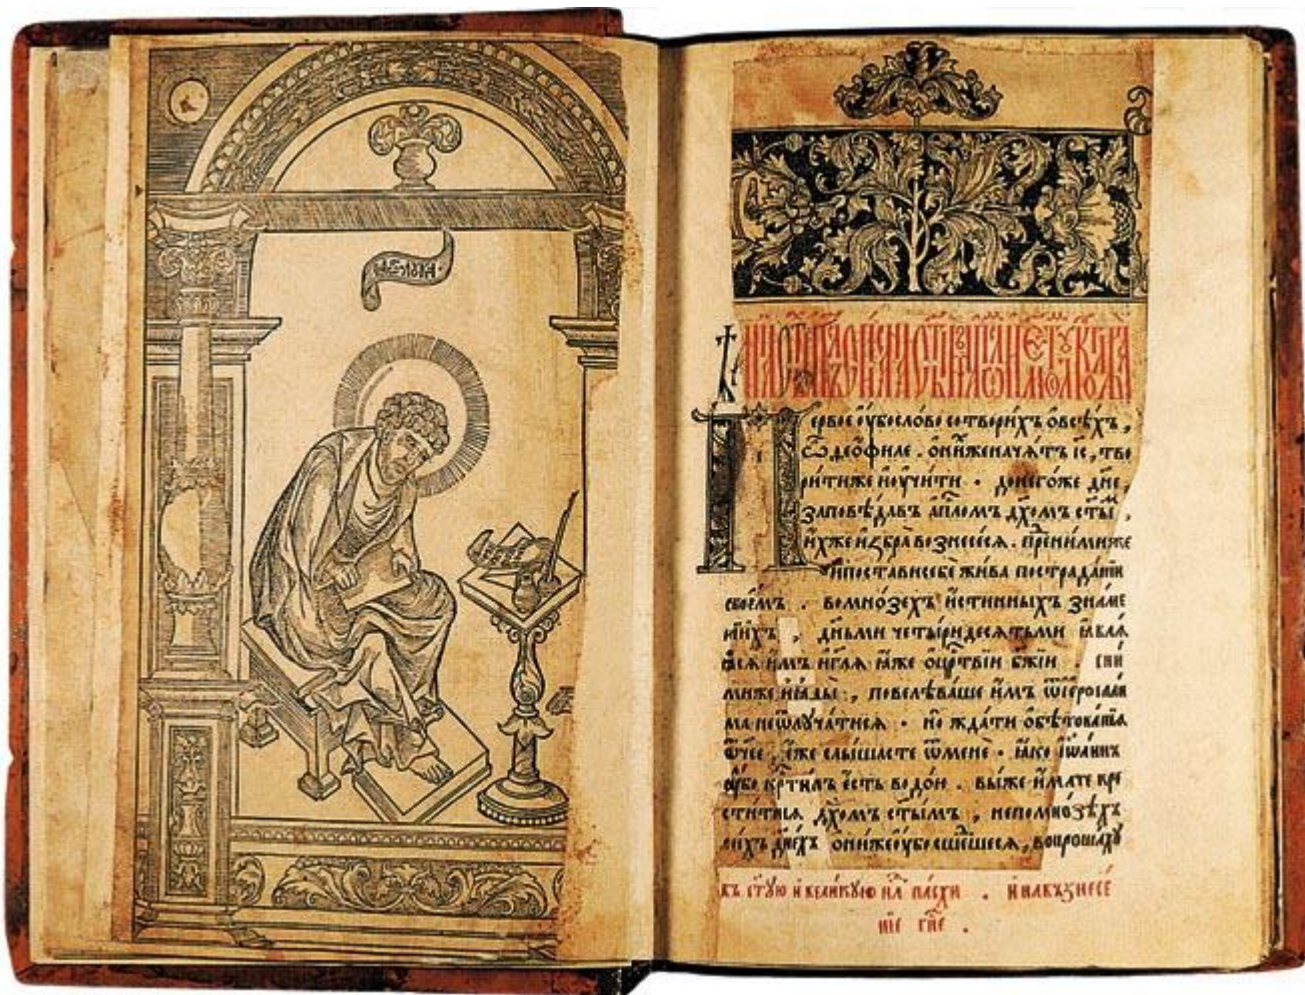 Первоє ѹбо слово сотворихъ ѡ всѣхъ ,
ѽ Ѳеѡфиле . ѡ нихже начатъ іс҃ , тво
рити же и ѹчити . до негоже дн҃е ,
заповѣдавъ ап҃лом дх҃омъ ст҃ы ,
ихже избра вознесесѧ . пред ними же
и постави себе жива по страданіи
своемъ . во мнозехъ истинныхъ знаме
ніихъ , дньми четыридесѧтьми ꙗвлѧ
ѧсѧ имъ и гл҃ѧ ꙗже о цр҃твіи бж҃іи . с ни
миже и ꙗды , повелѣваше имъ ѿ іеросали
ма не ѿлучатисѧ . но ждати обѣтованіѧ
ѿч҃ее , еже слышасте ѿ мене . ꙗко іѡаннъ
ѹбо кр҃тилъ єсть водою . вы же имате кре
ститисѧ дх҃омъ ст҃ымъ , не по мнозѣхъ
сихъ дн҃ехъ они же ѹбо сшедшесѧ , вопрошахѹ
въ ст҃ую и великую нл҃ пасхи . и на възнесе
ніе гн҃е .